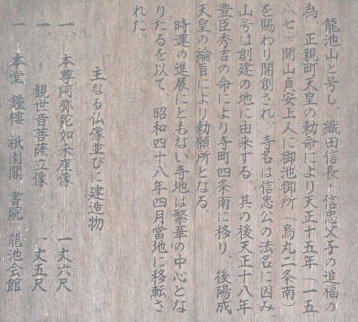 龍池山と号し、織田信長・信忠父子の追福の
為、正親町天皇の勅命により天正十五年(一五
八七)開山貞安上人に御池御所(烏丸二条南)
を賜わり開創され、寺名は信忠公の法名に因み
山号は創建の地に由来する。其の後天正十八年
豊臣秀吉の命により寺町四条南に移り、後陽成
天皇の綸旨により勅願所となる。
時運の進展にともない寺地は繁華の中心とな
りたるを以て、昭和四十八年四月当地に移転さ
れた。
主なる仏像並びに建造物
一 本尊阿弥陀如来座像 一丈六尺
一 観世音菩薩立像 一丈五尺
一 本堂 鐘楼 祇園閣 書院 龍池会館